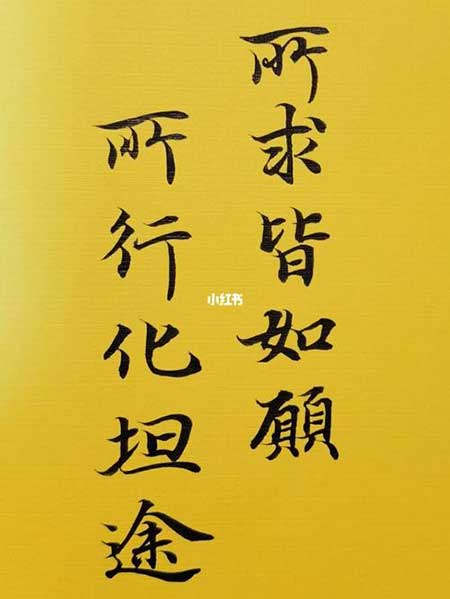 所求皆如願
所行化坦途
小红书